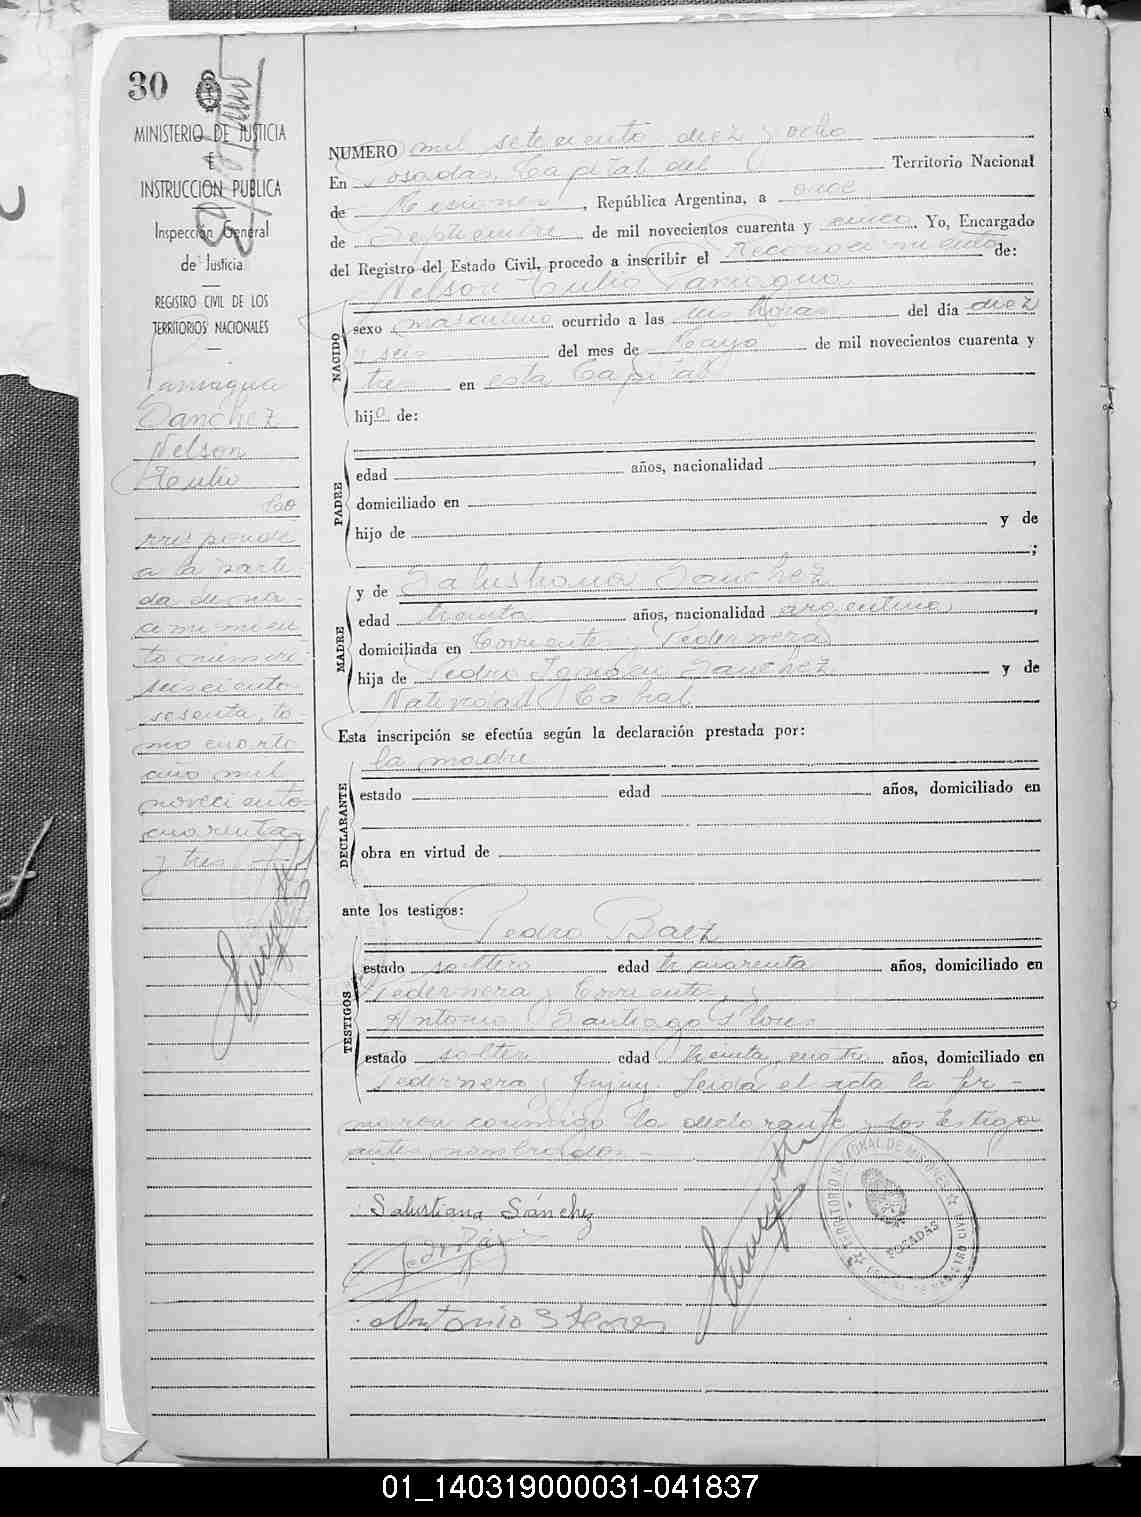 30
MINISTERIO DE JUSTICIA
E
INSTRUCCION PUBLICA
Inspección General
de Justicia
REGISTRO CIVIL DE LOS
TERRITORIOS NACIONALES
Paniagua
Sanchez
Nelson
Tulio
Co
rresponde
a la parti
da de na-
cimien
to número
seiscientos
sesenta, to-
mo cuarto
año mil
novecientos
cuarenta
y tres
NUMERO mil setecientos diez y ocho
En Posadas, Capital del Territorio Nacional
de Misiones, República Argentina, a once
de Septiembre de mil novecientos cuarenta y cinco. Yo, Encargado
del Registro del Estado Civil, procedo a inscribir el Reconocimiento de:
NACIDO
Nelson Tulio Paniagua
sexo masculino ocurrido a las horas del día diez
y seis del mes de Mayo de mil novecientos cuarenta y
tres en esta Capital
hijo de:
PADRE
edad años, nacionalidad
domiciliado en
hijo de y de
;
MADRE
y de Salustiana Sanchez
edad treinta años, nacionalidad argentina,
domiciliada en Corrientes y Pedernera
hija de Pedro Ignacio Sanchez y de
Natividad Cabral
Esta inscripción se efectúa según la declaración prestada por:
DECLARANTE
la madre
estado edad años, domiciliado en
obra en virtud de
ante los testigos:
TESTIGOS
Pedro Baez
estado soltero edad cuarenta años, domiciliado en
Pedernera y Corrientes y
Antonio Santiago Flores
estado soltero edad treinta y cuatro años, domiciliado en
Pedernera y Jujuy. Leida el acta la fir-
maron conmigo la declarante y los testigos
antes nombrados.-
Salustiana Sánchez
Antonio S Flores
TERRITORIO NACIONAL DE MISIONES
POSADAS
01_140319000031-041837